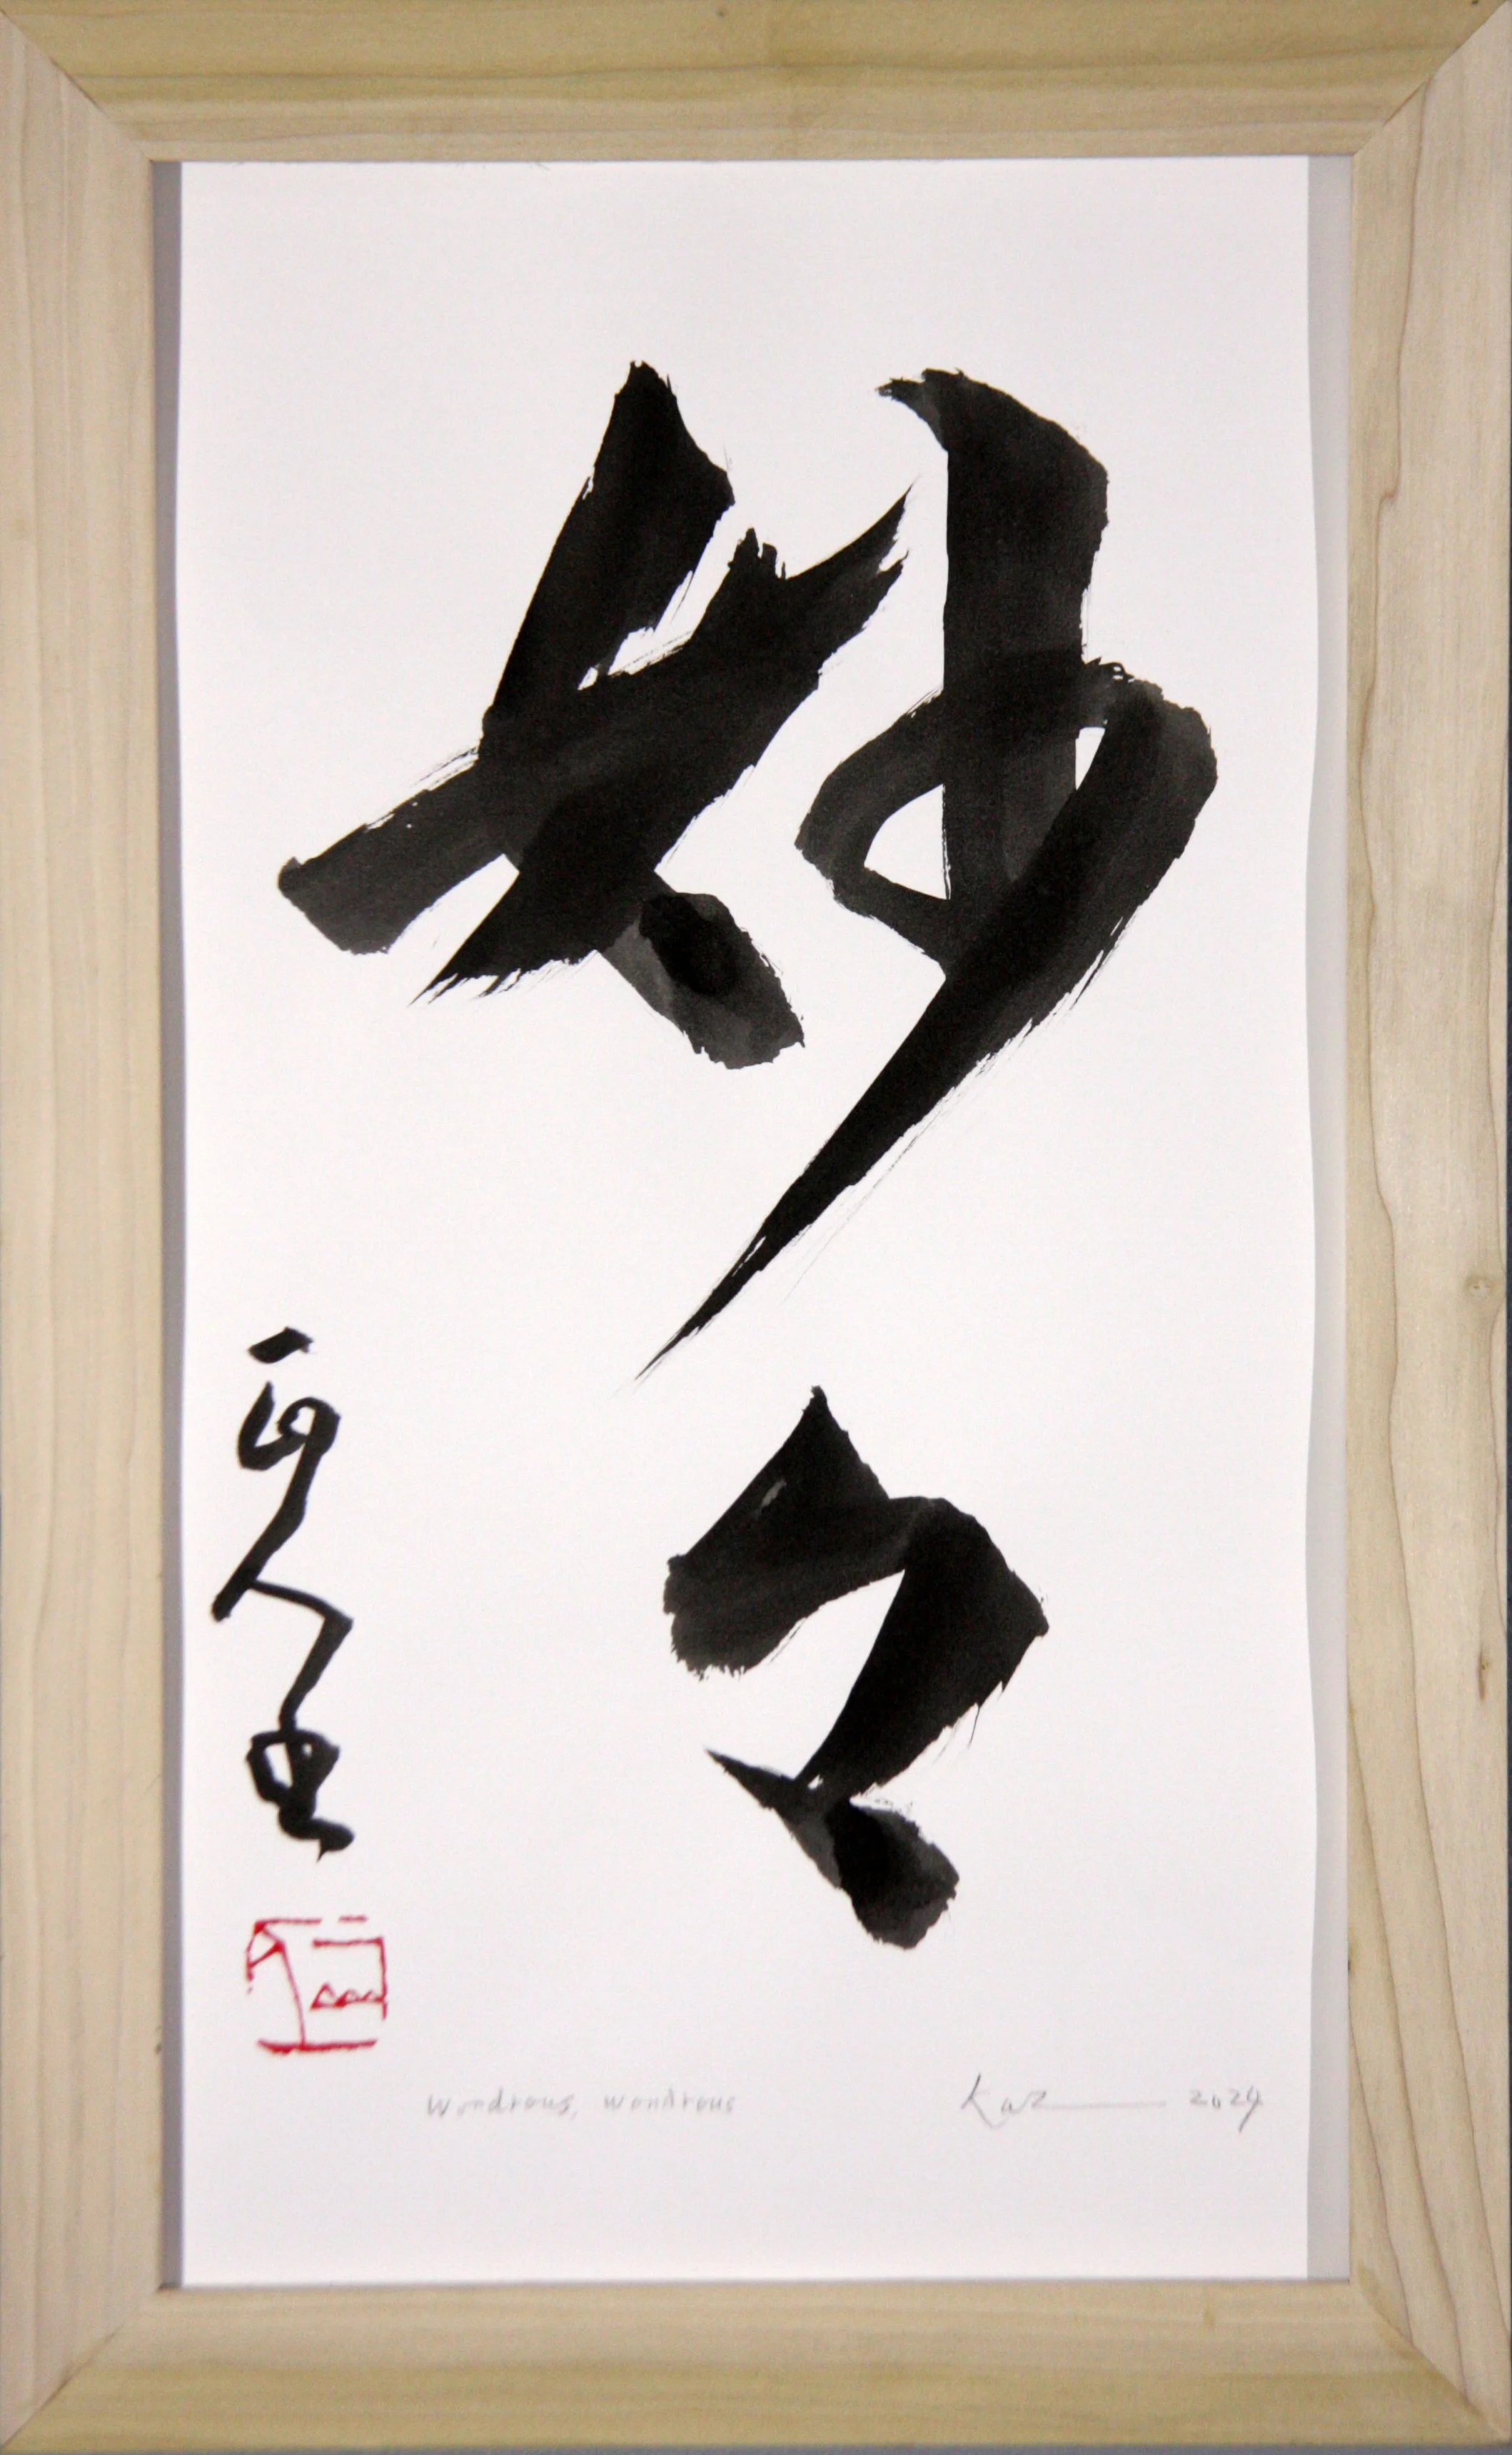 妙
々
Wondrous, wondrous
Kaz 2024